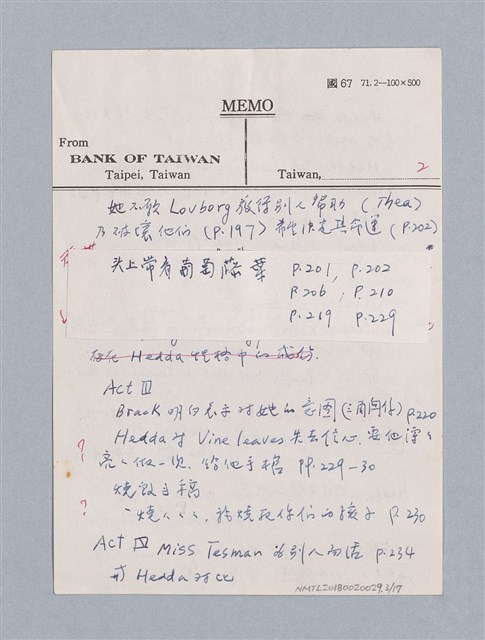 國 67 71.2—100×500
MEMO
From
BANK OF TAIWAN
Taipei, Taiwan
Taiwan,
2
她不欲 Lovborg 獲得別人幫助 (Thea)
乃破壞他們 (P.197) 希望決定其命運 (P.202)
头上帶有葡萄藤葉 P.201, P.202
P.206; P.210
P.219 P.229
Hedda 性格中的成份.
Act III
Brack 明白表示对她的意圖 (三角関係) p.220
? Hedda 对 Vine leaves 失去信心, 要他漂々
亮々做一次. 給他手槍 PP.229-30
燒毀手稿
? 燒 你們的孩子 P.230
Act IV Miss Tesman 為別人而活 P.234
Hedda 对比
NMTL20180020029.2/17